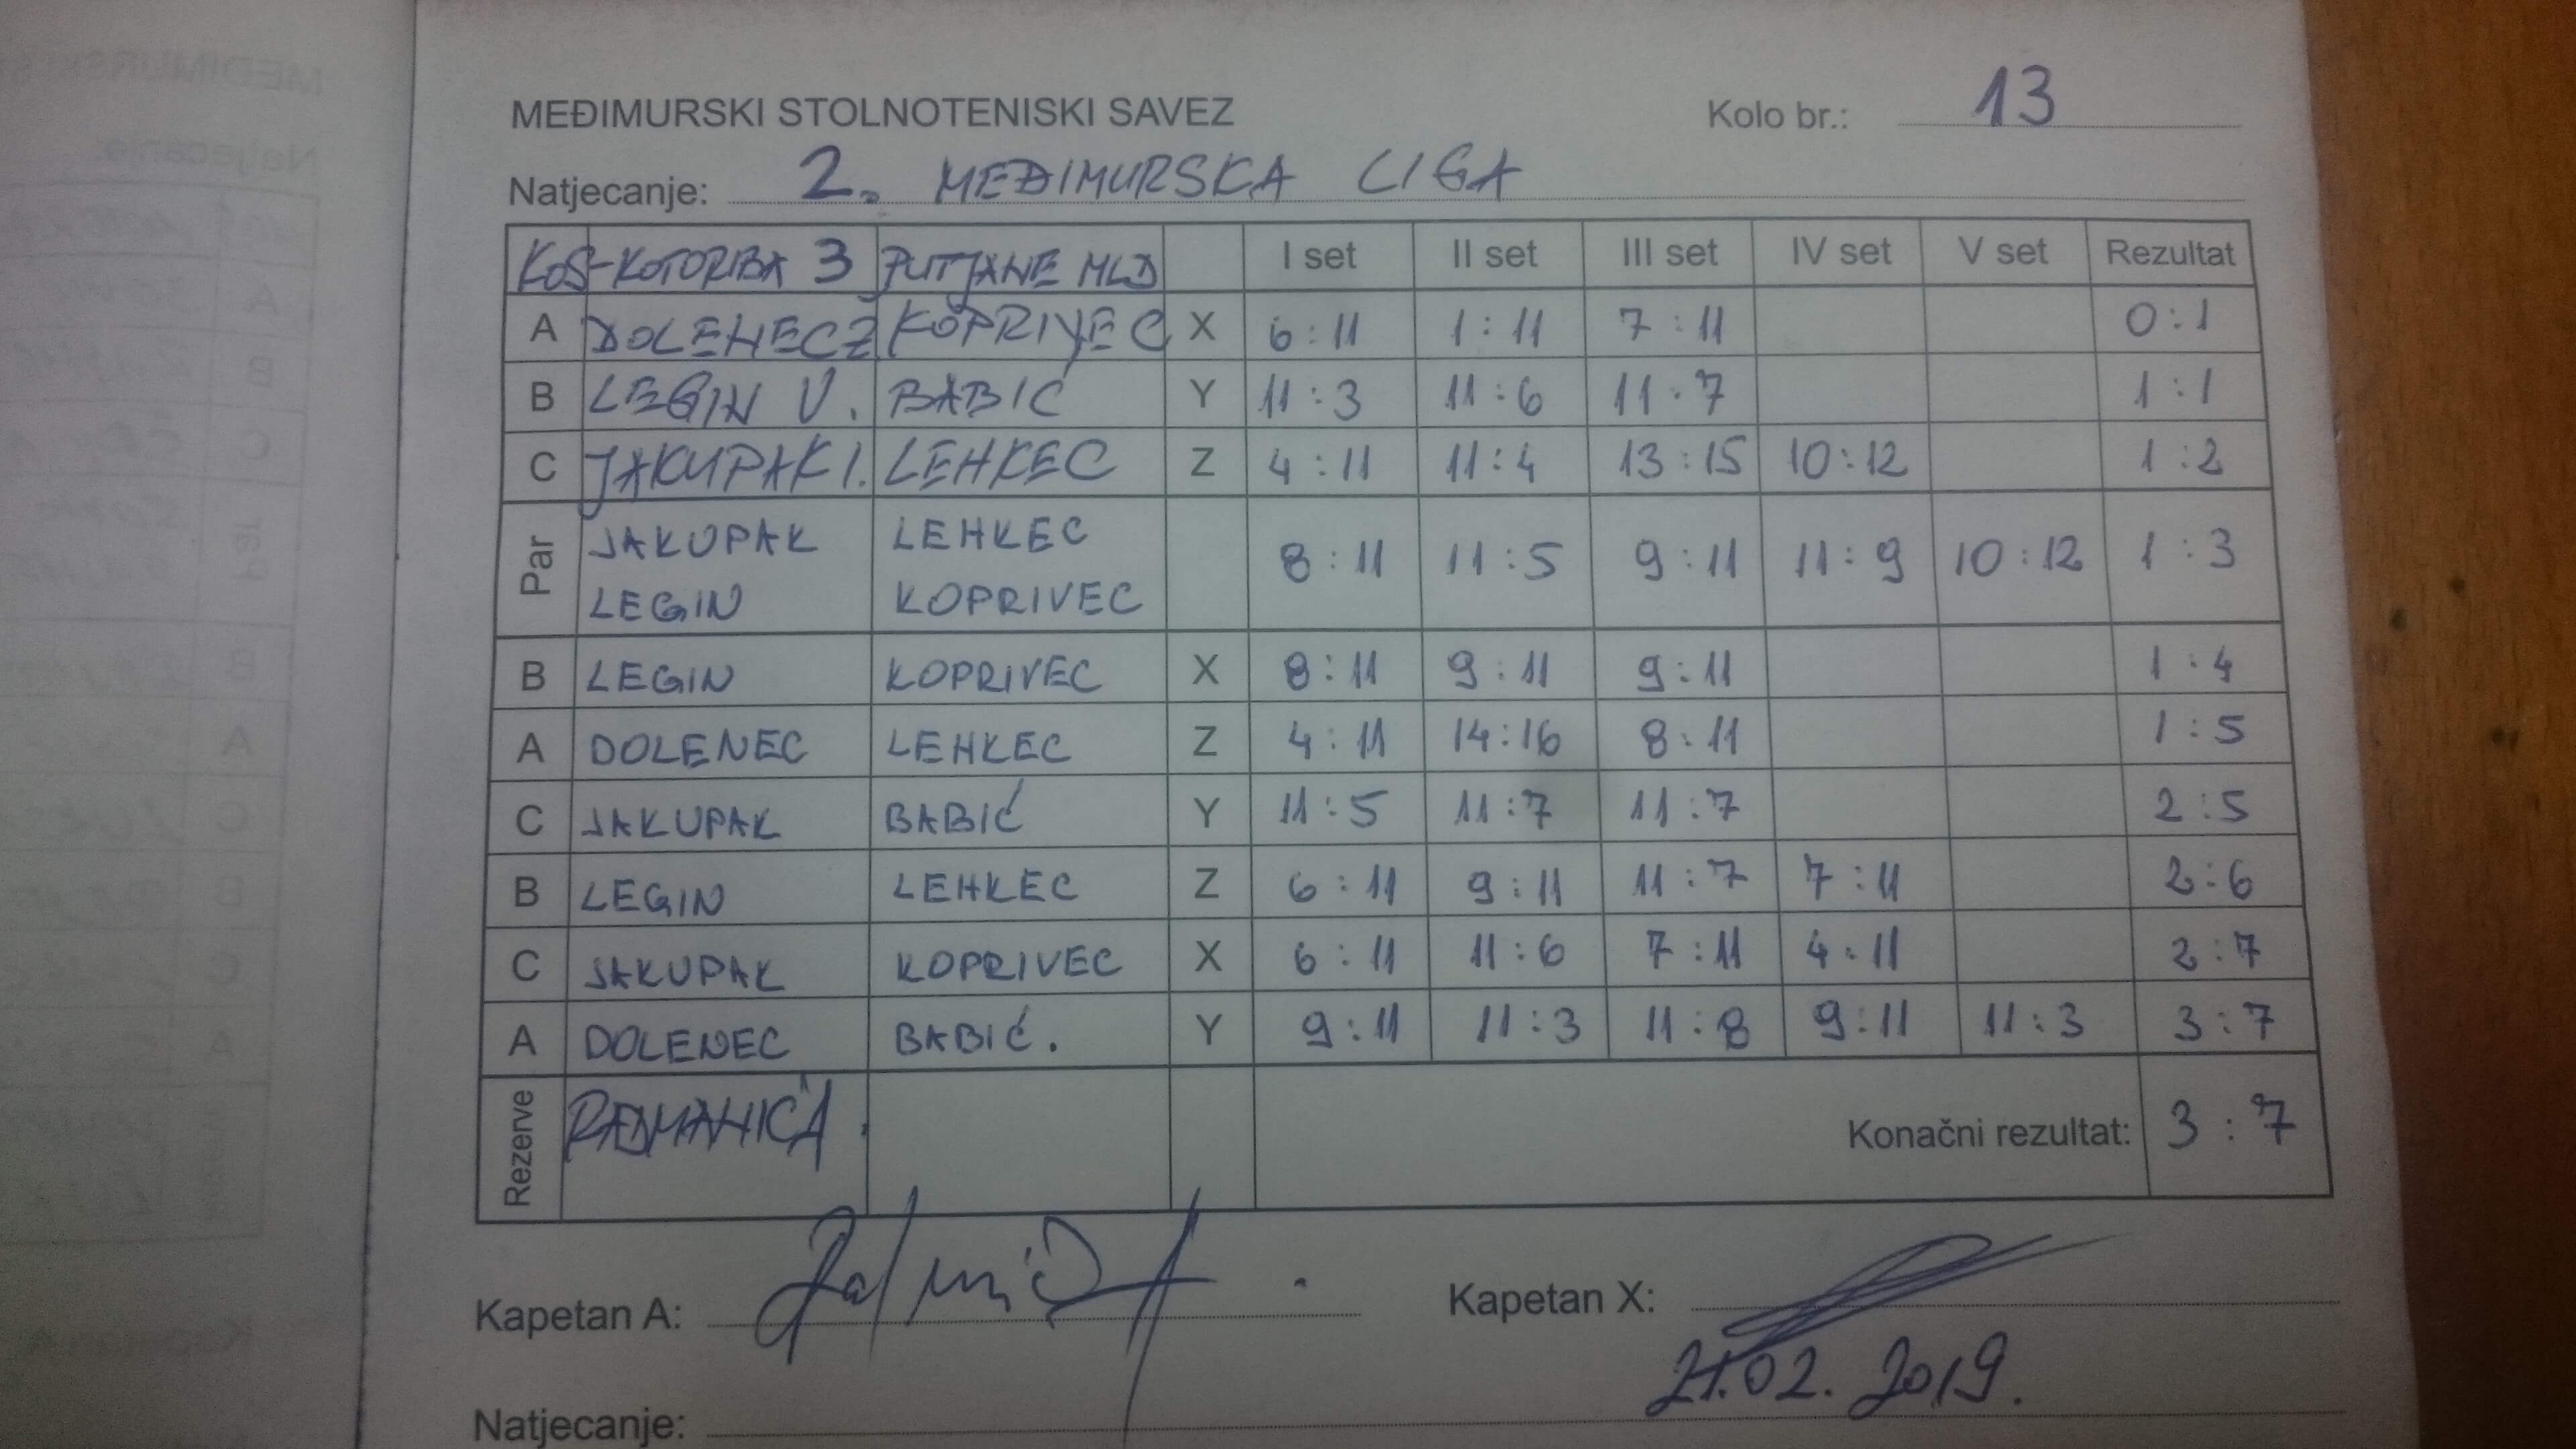 MEĐIMURSKI STOLNOTENISKI SAVEZ Kolo br.: 13
Natjecanje: 2. MEĐIMURSKA LIGA
KOŠ-KOTORIBA 3 PUTJANE MLD I set II set III set IV set V set Rezultat
A DOLENEC Ž KOPRIVEC X 6:11 1:11 7:11 0:1
B LEGIN V. BABIĆ Y 11:3 11:6 11:7 1:1
C JAKUPAK I. LEHKEC Z 4:11 11:4 13:15 10:12 1:2
Par JAKUPAK LEHKEC 8:11 11:5 9:11 11:9 10:12 1:3
LEGIN KOPRIVEC
B LEGIN KOPRIVEC X 8:11 9:11 9:11 1:4
A DOLENEC LEHKEC Z 4:11 14:16 8:11 1:5
C JAKUPAK BABIĆ Y 11:5 11:7 11:7 2:5
B LEGIN LEHKEC Z 6:11 9:11 11:7 7:11 2:6
C JAKUPAK KOPRIVEC X 6:11 11:6 7:11 4:11 2:7
A DOLENEC BABIĆ. Y 9:11 11:3 11:8 9:11 11:3 3:7
Rezerve Konačni rezultat: 3:7
Kapetan A: Kapetan X:
21.02.2019.
Natjecanje: